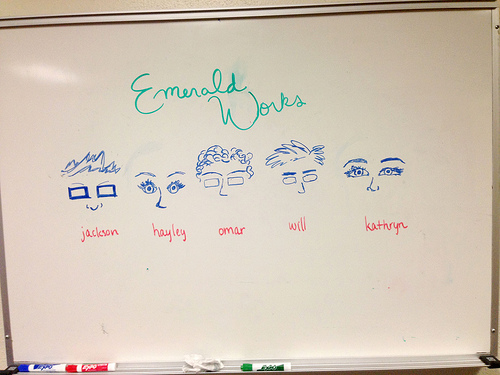 Emerald
Works
jackson hayley omar will kathryn
EXPO EXPO EXPO